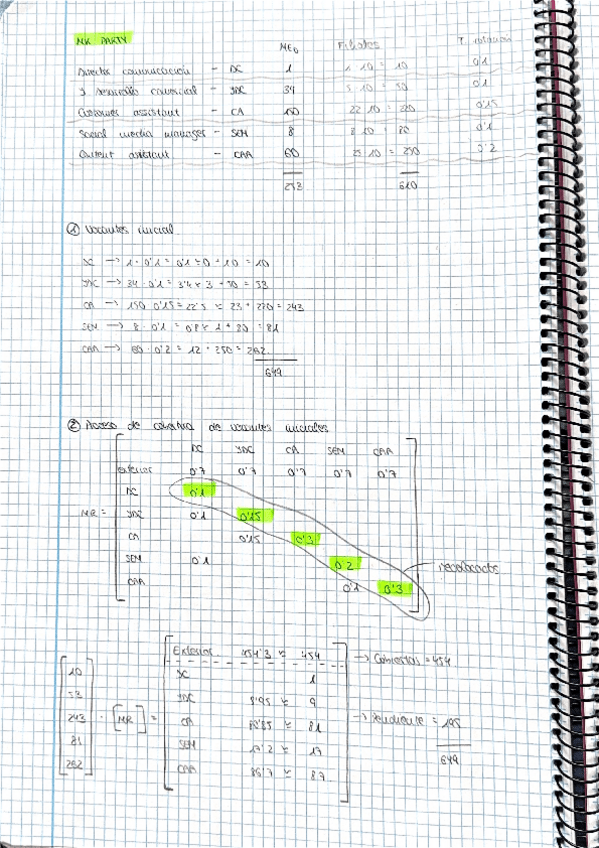 MK PARTY
ME0 Filiales T. rotación
Director comunicación - DC 1 1·10 = 10 0'1
J desarrollo comercial - JDC 34 5·10 = 50 0'1
Customer assistant - CA 150 22·10 = 220 0'15
Social media manager - SEM 8 8·10 = 80 0'1
Content assistant - CAA 60 25·10 = 250 0'2
253 610
① Vacantes inicial
DC → 1·0'1 = 0'1 ≈ 0 + 10 = 10
JDC → 34·0'1 = 3'4 ≈ 3 + 50 = 53
CA → 150·0'15 = 22'5 ≈ 23 + 220 = 243
SEM → 8·0'1 = 0'8 ≈ 1 + 80 = 81
CAA → 60·0'2 = 12 + 250 = 262
649
② Acceso de cobertura de vacantes iniciales
DC JDC CA SEM CAA
exterior 0'7 0'7 0'7 0'7 0'7
DC 0'1
MR = JDC 0'1 0'15
CA 0'15 0'3
SEM 0'1 0'2
CAA 0'1 0'3
recolocados
Exterior 454'3 ≈ 454 → Cubiertas = 454
10 DC 1
53 JDC 8'95 ≈ 9 → Pendiente = 195
243 · [MR] = CA 80'85 ≈ 81
81 SEM 17'2 ≈ 17 649
262 CAA 86'7 ≈ 87